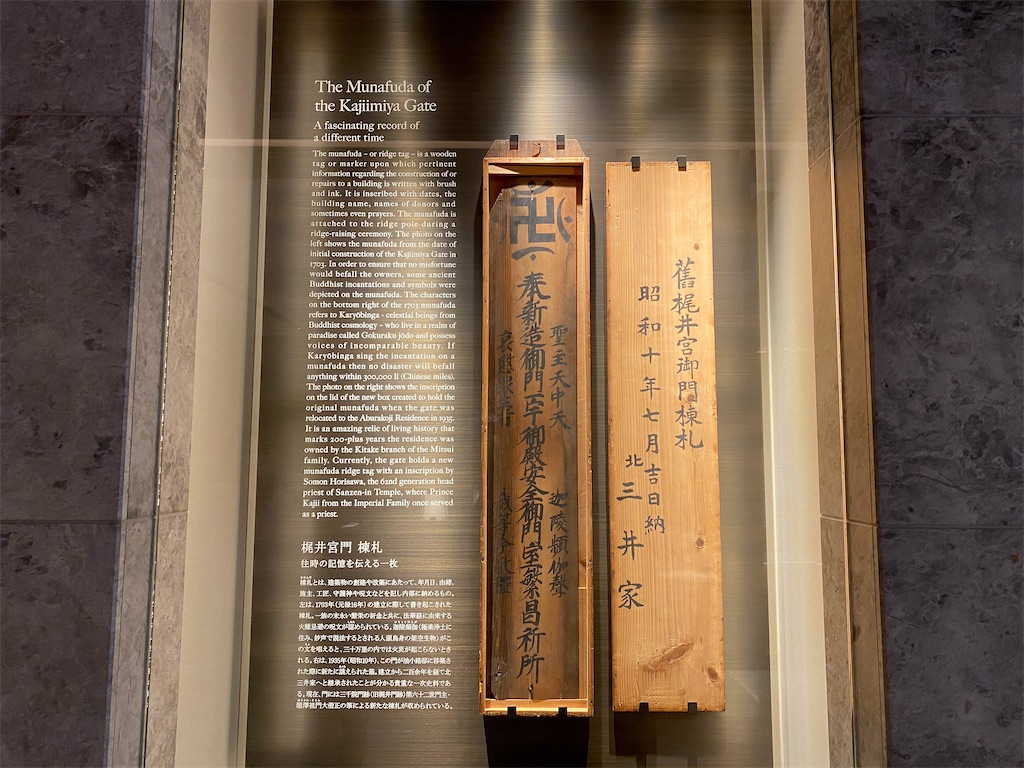 The Munafuda of
the Kajiimiya Gate
A fascinating record of
a different time
The munafuda – or ridge tag – is a wooden
tag or marker upon which pertinent
information regarding the construction of or
repairs to a building is written with brush
and ink. It is inscribed with dates, the
building name, names of donors and
sometimes even prayers. The munafuda is
attached to the ridge pole during a
ridge-raising ceremony. The photo on the
left shows the munafuda from the date of
initial construction of the Kajiimiya Gate in
1703. In order to ensure that no misfortune
would befall the owners, some ancient
Buddhist incantations and symbols were
depicted on the munafuda. The characters
on the bottom right of the 1703 munafuda
refers to Karyōbinga - celestial beings from
Buddhist cosmology – who live in a realm of
paradise called Gokuraku jōdo and possess
voices of incomparable beauty. If
Karyōbinga sing the incantation on a
munafuda then no disaster will befall
anything within 300,000 li (Chinese miles).
The photo on the right shows the inscription
on the lid of the new box created to hold the
original munafuda when the gate was
relocated to the Aburakoji Residence in 1935.
It is an amazing relic of living history that
marks 200-plus years the residence was
owned by the Kitake branch of the Mitsui
family. Currently, the gate holds a new
munafuda ridge tag with an inscription by
Somon Horisawa, the 62nd generation head
priest of Sanzen-in Temple, where Prince
Kajii from the Imperial Family once served
as a priest.
梶井宮門 棟札
往時の記憶を伝える一枚
棟札とは、建築物の創建や改築にあたって、年月日、由緒、
施主、工匠、守護神や呪文などを記し内部に納めるもの。
左は、1703年(元禄16年)の建立に際して書き起こされた
棟札。一族の末永い繁栄の祈念と共に、法華経に由来する
火難忌避の呪文が認められている。迦陵頻伽(極楽浄土に
住み、妙声で説法するとされる人頭鳥身の架空生物)がこ
の文を唱えると、三十万里の内では火災が起こらないとさ
れる。右は、1935年(昭和10年)、この門が油小路邸に移築さ
れた際に新たに誂えられた箱。建立から二百余年を経て北
三井家へと継承されたことが分かる貴重な一次史料であ
る。現在、門には三千院門跡(旧梶井門跡)第六十二世門主・
堀澤祖門大僧正の筆による新たな棟札が収められている。
卍
聖主天中天
迦陵頻伽聲
奉新造御門
御殿安全御門室繁昌祈所
哀愍
舊梶井宮御門棟札
昭和十年七月吉日納
北三井家